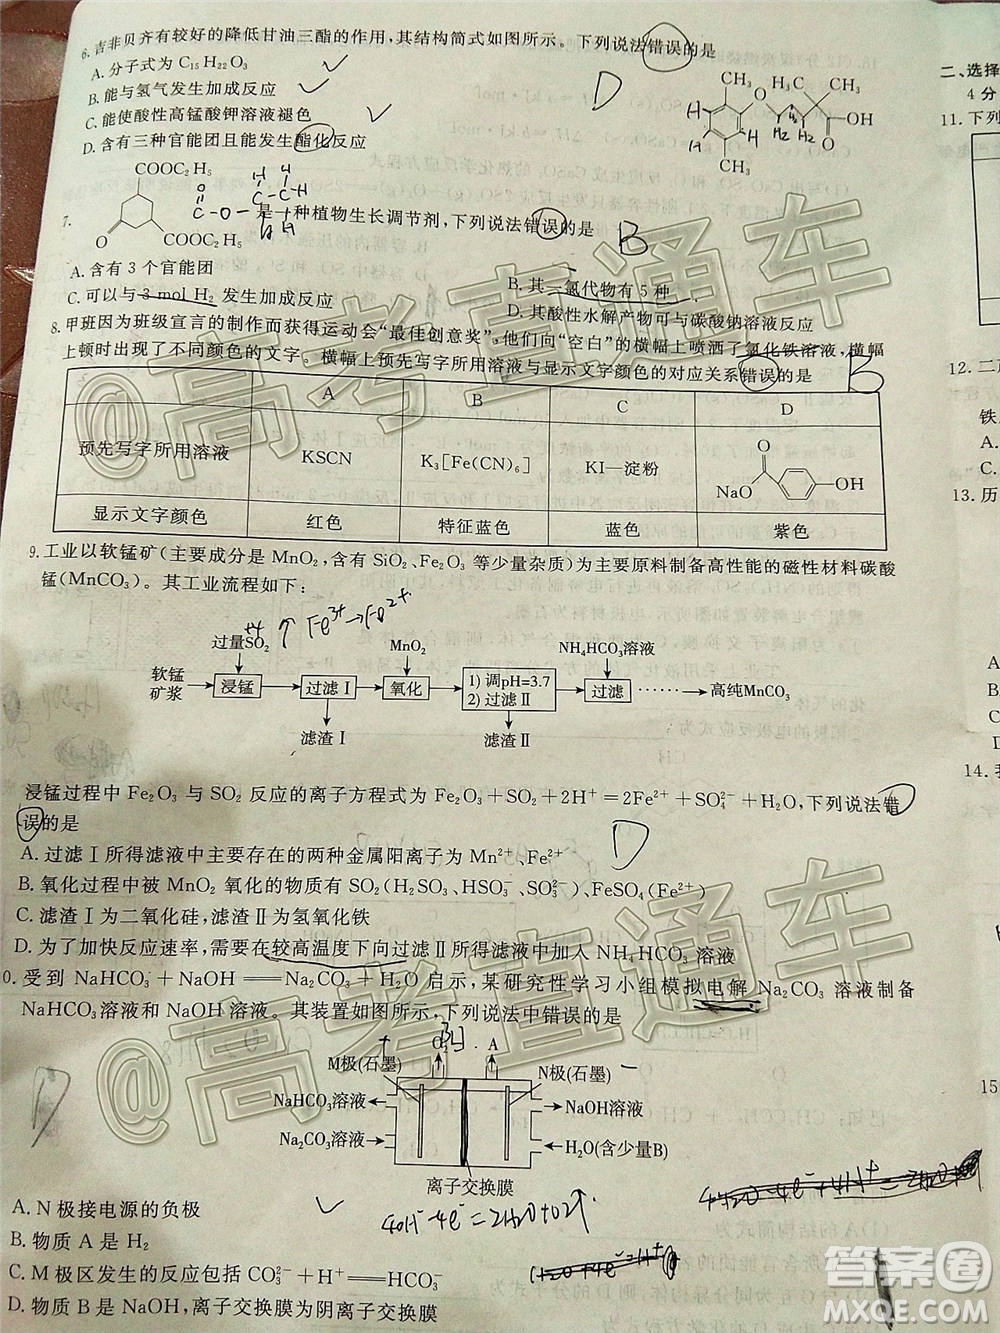 6. 吉非贝齐有较好的降低甘油三酯的作用,其结构简式如图所示。下列说法错误的是
A. 分子式为 C₁₅H₂₂O₃ ✓
B. 能与氢气发生加成反应 ✓
C. 能使酸性高锰酸钾溶液褪色
D. 含有三种官能团且能发生酯化反应
D
CH₃ H₃C CH₃
O
OH
O
CH₃
H H H H
COOC₂H₅
O
COOC₂H₅
7. 是一种植物生长调节剂,下列说法错误的是 B
A. 含有 3 个官能团
B. 其一氯代物有 5 种
C. 可以与 3 mol H₂ 发生加成反应
D. 其酸性水解产物可与碳酸钠溶液反应
8. 甲班因为班级宣言的制作而获得运动会“最佳创意奖”,他们向“空白”的横幅上喷洒了氯化铁溶液,横幅
上顿时出现了不同颜色的文字。横幅上预先写字所用溶液与显示文字颜色的对应关系错误的是 B
A B C D
预先写字所用溶液 KSCN K₃[Fe(CN)₆] KI—淀粉 NaO O OH
显示文字颜色 红色 特征蓝色 蓝色 紫色
9. 工业以软锰矿(主要成分是 MnO₂,含有 SiO₂、Fe₂O₃ 等少量杂质)为主要原料制备高性能的磁性材料碳酸
锰(MnCO₃)。其工业流程如下:
Fe³⁺→Fe²⁺
过量SO₂ MnO₂ NH₄HCO₃溶液
软锰
矿浆
浸锰 过滤Ⅰ 氧化
1) 调pH=3.7
2) 过滤Ⅱ
过滤 ······ 高纯MnCO₃
滤渣Ⅰ 滤渣Ⅱ
浸锰过程中 Fe₂O₃ 与 SO₂ 反应的离子方程式为 Fe₂O₃+SO₂+2H⁺=2Fe²⁺+SO₄²⁻+H₂O,下列说法错
误的是 D
A. 过滤Ⅰ所得滤液中主要存在的两种金属阳离子为 Mn²⁺、Fe²⁺
B. 氧化过程中被 MnO₂ 氧化的物质有 SO₂(H₂SO₃、HSO₃⁻、SO₃²⁻)、FeSO₄(Fe²⁺)
C. 滤渣Ⅰ为二氧化硅,滤渣Ⅱ为氢氧化铁
D. 为了加快反应速率,需要在较高温度下向过滤Ⅱ所得滤液中加入 NH₄HCO₃ 溶液
0. 受到 NaHCO₃+NaOH══Na₂CO₃+H₂O 启示,某研究性学习小组模拟电解 Na₂CO₃ 溶液制备
NaHCO₃溶液和 NaOH 溶液。其装置如图所示,下列说法中错误的是
D
O₂ 阳 A
M极(石墨) N极(石墨)
NaHCO₃溶液 NaOH溶液
Na₂CO₃溶液 H₂O(含少量B)
离子交换膜
4OH⁻-4e⁻=2H₂O+O₂↑
A. N 极接电源的负极 ✓
B. 物质 A 是 H₂
C. M 极区发生的反应包括 CO₃²⁻+H⁺══HCO₃⁻
D. 物质 B 是 NaOH,离子交换膜为阴离子交换膜
二、选择
4 分
11. 下列
12. 二
铁
A.
C.
13. 历
A
B
C
D
14.
15
@高考直通车
@高考直通车
答案圈
MXQE.COM